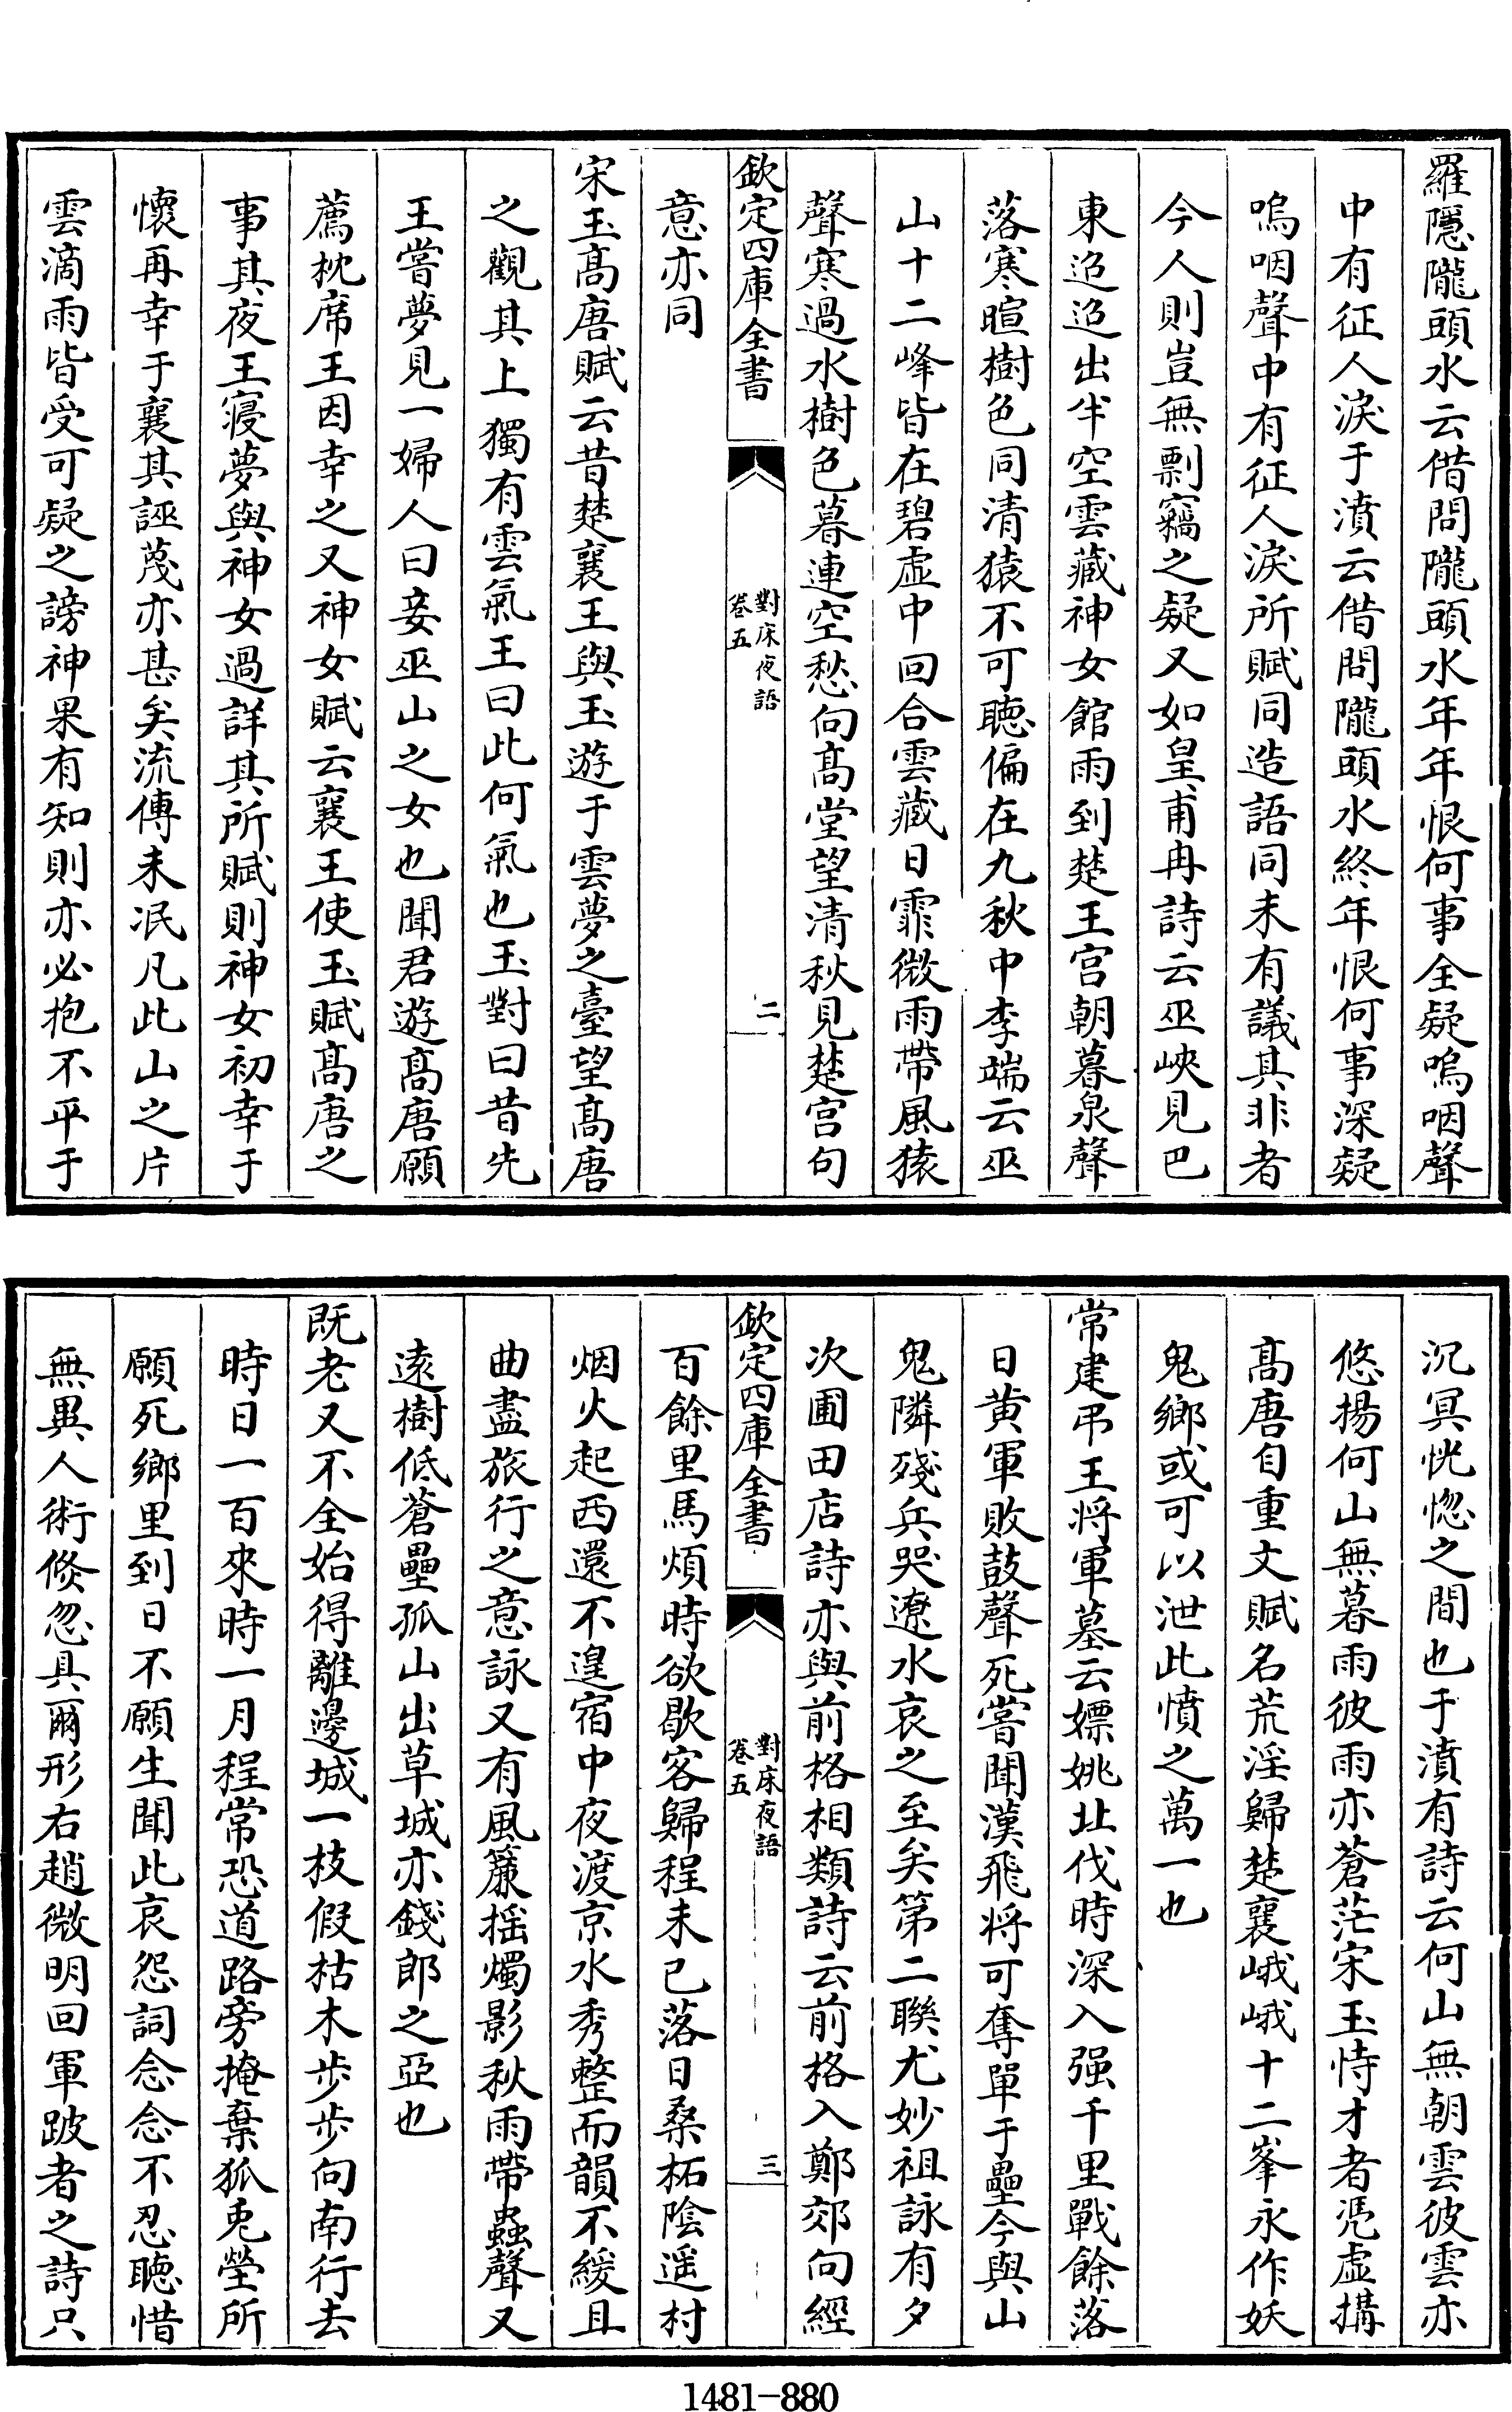 羅隱隴頭水云借問隴頭水年年恨何事全疑嗚咽聲
中有征人淚于濆云借問隴頭水終年恨何事深疑
嗚咽聲中有征人淚所賦同造語同未有議其非者
今人則豈無剽竊之疑又如皇甫冉詩云巫峽見巴
東迢迢出半空雲藏神女館雨到楚王宫朝暮泉聲
落寒暄樹色同清猿不可聽偏在九秋中李端云巫
山十二峰皆在碧虛中回合雲藏日霏微雨帶風猿
聲寒過水樹色暮連空愁向髙堂望清秋見楚宫句
欽定四庫全書
對床夜語
卷五
二
意亦同
宋玉髙唐賦云昔楚襄王與玉遊于雲夢之臺望髙唐
之觀其上獨有雲氣王曰此何氣也玉對曰昔先
王嘗夢見一婦人曰妾巫山之女也聞君遊髙唐願
薦枕席王因幸之又神女賦云襄王使玉賦髙唐之
事其夜王寢夢與神女過詳其所賦則神女初幸于
懷再幸于襄其誣蔑亦甚矣流傳未泯凡此山之片
雲滴雨皆受可疑之謗神果有知則亦必抱不平于
沉冥恍惚之間也于濆有詩云何山無朝雲彼雲亦
悠揚何山無暮雨彼雨亦蒼茫宋玉恃才者憑虛搆
髙唐自重文賦名荒淫歸楚襄峨峨十二峯永作妖
鬼鄉或可以泄此憤之萬一也
常建弔王將軍墓云嫖姚北伐時深入强千里戰餘落
日黄軍敗鼓聲死嘗聞漢飛将可奪單于壘今與山
鬼隣殘兵哭遼水哀之至矣第二聯尤妙祖詠有夕
次圃田店詩亦與前格相類詩云前格入鄭郊向經
欽定四庫全書
對床夜語
卷五
三
百餘里馬煩時欲歇客歸程未已落日桑柘陰遥村
烟火起西還不遑宿中夜渡京水秀整而韻不緩且
曲盡旅行之意詠又有風簾摇燭影秋雨帶蟲聲又
遠樹低蒼壘孤山出草城亦錢郎之亞也
既老又不全始得離邊城一枝假枯木步步向南行去
時日一百來時一月程常恐道路旁掩棄狐兎塋所
願死鄉里到日不願生聞此哀怨詞念念不忍聽惜
無異人術倐忽具爾形右趙微明回軍跛者之詩只
1481-880